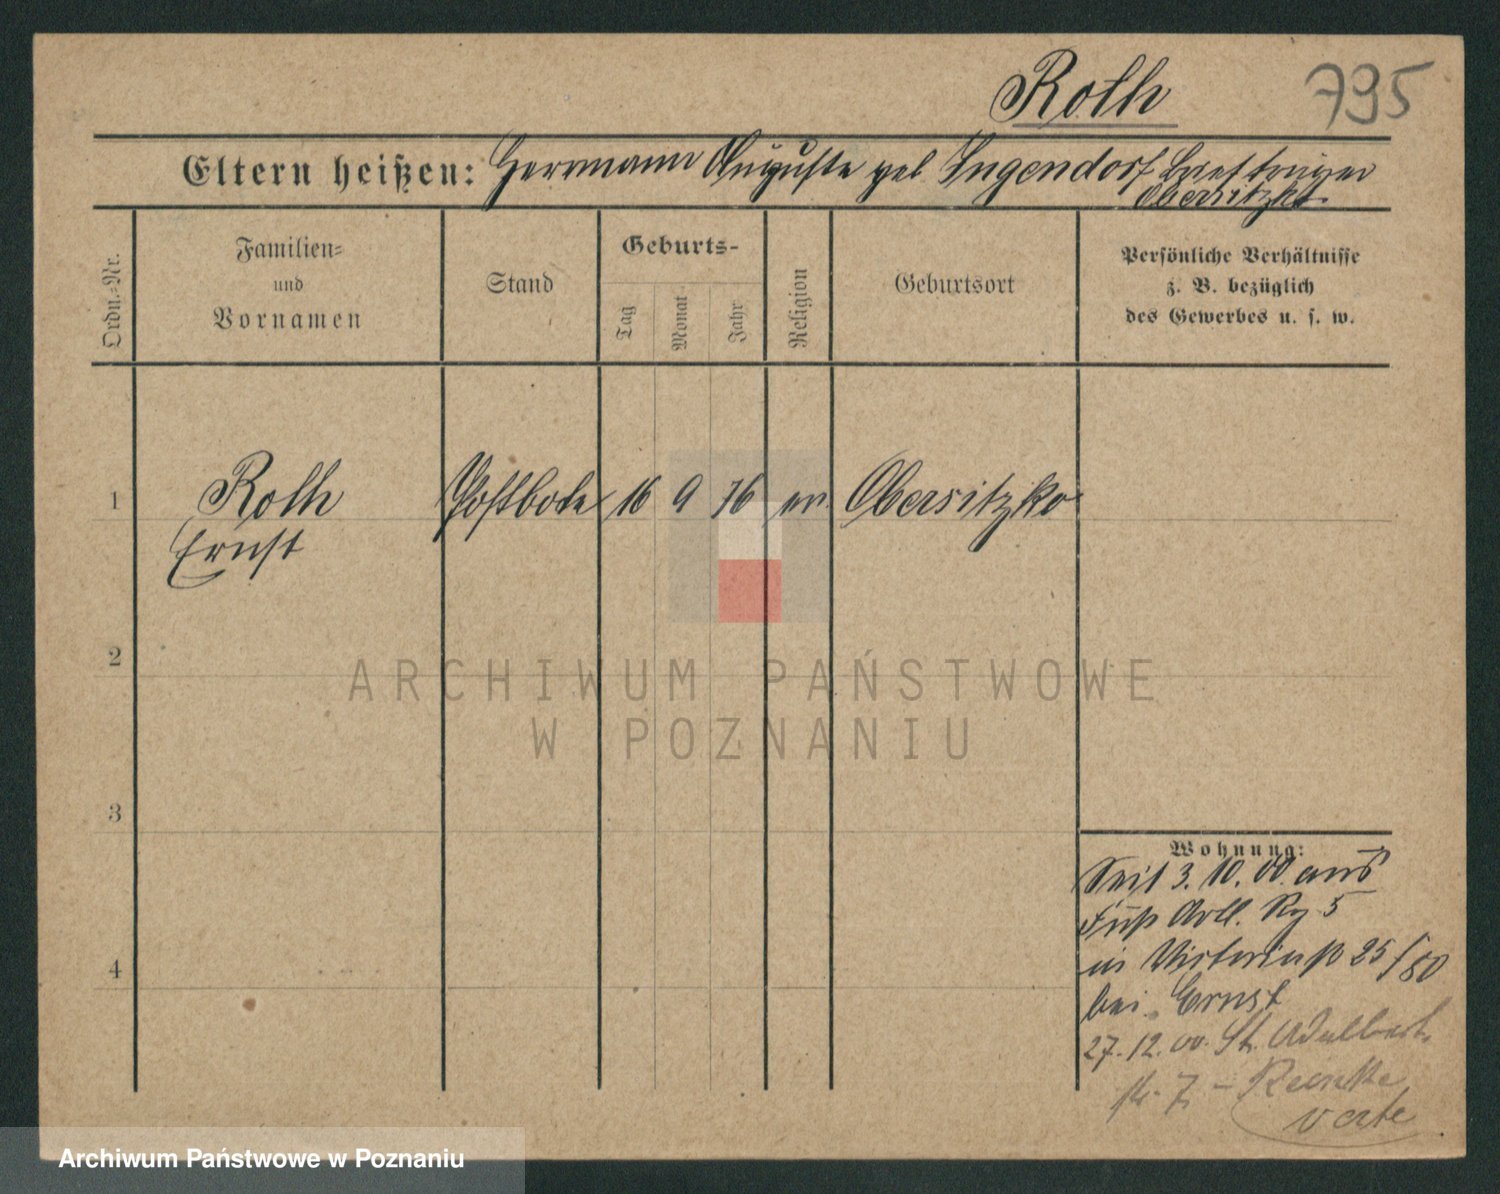 Roth
795
Eltern heißen: Herrmann Auguste geb. Jugendorf Briefträger
Obersitzko
Ordn.-Nr.
Familien-
und
Vornamen
Stand
Geburts-
Tag
Monat
Jahr
Religion
Geburtsort
Persönliche Verhältnisse
z. B. bezüglich
des Gewerbes u. s. w.
1 Roth Postbote 16 9 76 ev. Obersitzko
Ernst
2
3
4
Wohnung:
Seit 3. 10. 00 aus
Fuß Artl. Rg 5
in Victoriastr 25/80
bei Ernst
27. 12. 00. St. Adalbert
str. 7 –
verte
ARCHIWUM PAŃSTWOWE
W POZNANIU
Archiwum Państwowe w Poznaniu